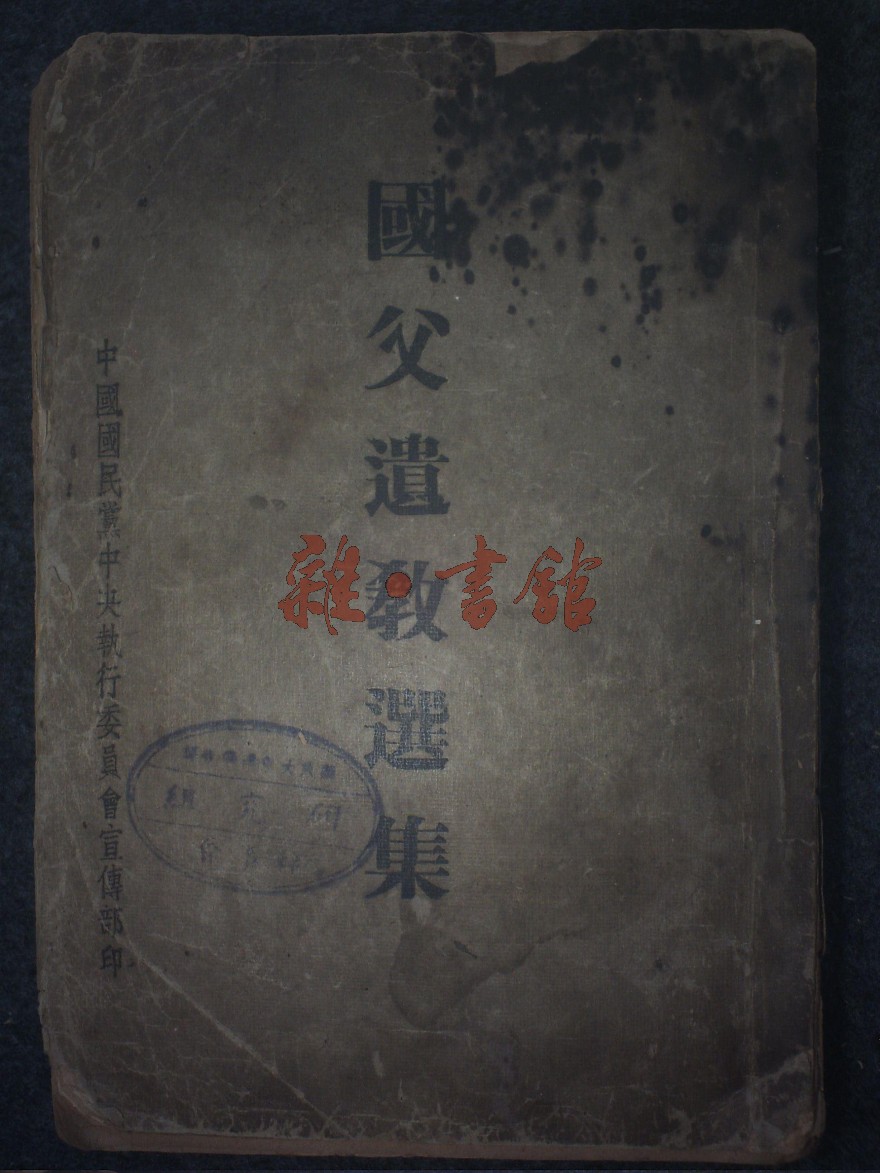 國父遺教選集
中國國民黨中央執行委員會宣傳部印
雜·書館